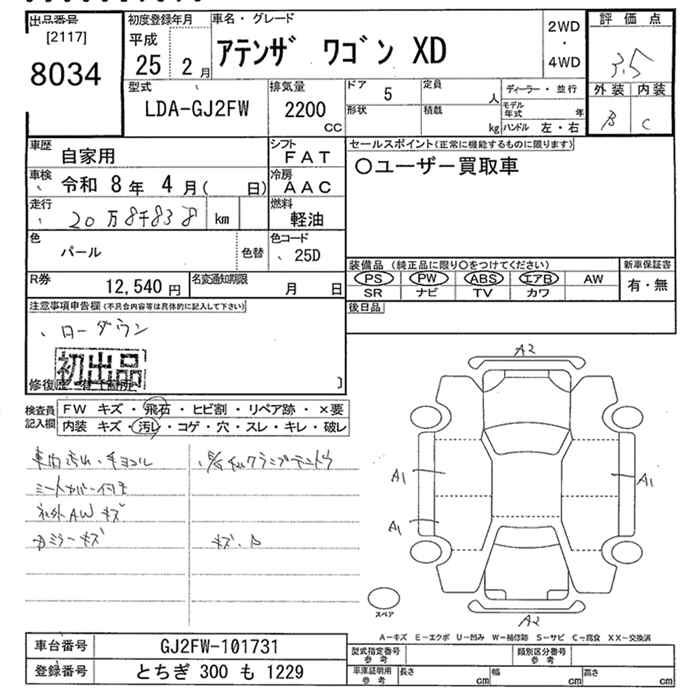 出品番号
[2117]
8034
初度登録年月
平成
25 2月
車名・グレード
アテンザ ワゴン XD
2WD
・
4WD
評価点
3.5
外装 内装
B C
型式
LDA-GJ2FW
排気量
2200
CC
ドア 5
定員
人
ディーラー・並行
形状
積載
kg
モデル年式 年
ハンドル 左・右
車歴
自家用
シフト
FAT
車検
令和 8年 4月( 日)
冷房
AAC
走行
20万8千838 km
燃料
軽油
色
パール
色替
色コード
25D
R券
12,540円
名変通知期限
月 日
セールスポイント(正常に機能するものに限ります)
○ユーザー買取車
装備品 (純正品に限り○をつけてください)
PS PW ABS エアB AW
SR ナビ TV カワ
新車保証書
有・無
後日品
注意事項申告欄(不具合内容等は具体的に記入して下さい)
、ローダウン
初出品
修復歴
検査員
記入欄
FW キズ・飛石・ヒビ割・リペア跡・×要
内装 キズ・汚レ・コゲ・穴・スレ・キレ・破レ
車内汚れ・
シートカバー付き
社外AWキズ
ミラーキズ
A2
A1
A1
A1
A2
スペア
A−キズ E−エクボ U−凹み W−補修跡 S−サビ C−腐食 XX−交換済
車台番号
GJ2FW-101731
登録番号
とちぎ 300 も 1229
型式指定番号
参考
類別区分番号
参考
車庫証明
参考
長さ cm
幅 cm
高さ cm